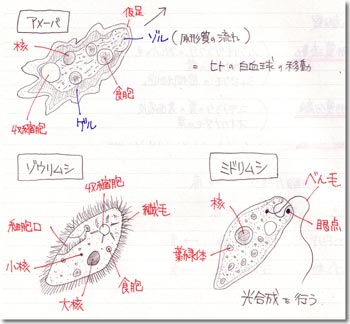 アメーバ
仮足
ゾル(原形質の流れ)
= ヒトの白血球の移動
核
食胞
収縮胞
ゲル
ゾウリムシ
収縮胞
繊毛
細胞口
小核
食胞
大核
ミドリムシ
べん毛
核
眼点
葉緑体
光合成を行う